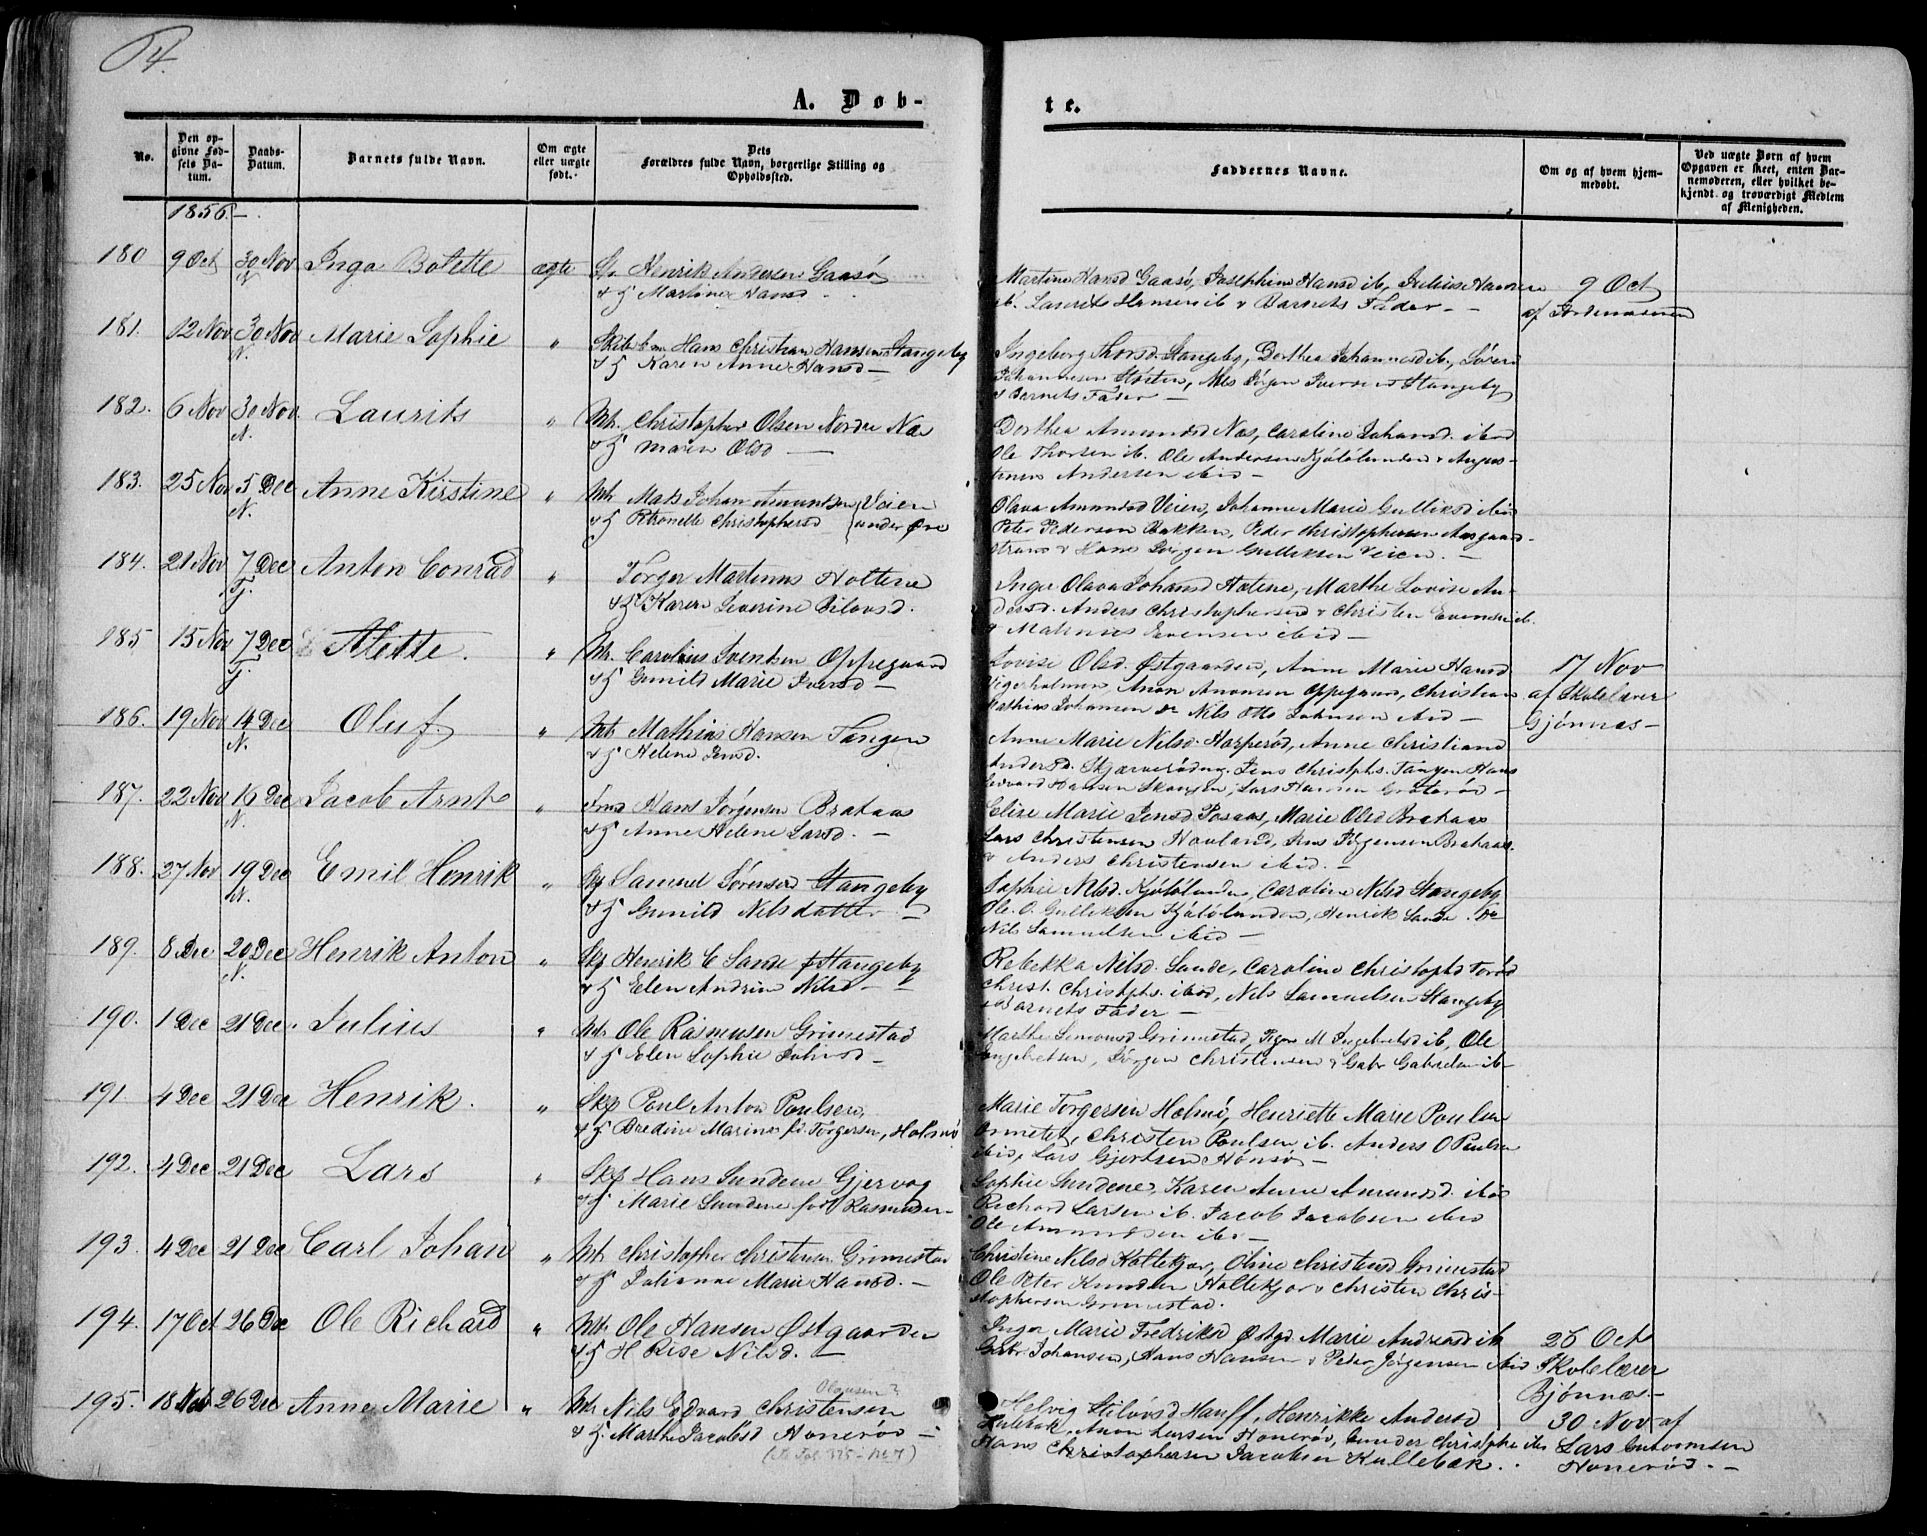 64.
A. Døb-
te.
No.
Den op-
givne Fød-
sels Da-
tum.
Daabs-
Datum.
Barnets fulde Navn.
Om ægte
eller uægte
født.
Dets
Forældres fulde Navn, borgerlige Stilling og
Opholdssted.
Faddernes Navne.
Om og af hvem hjem-
medøbt.
Ved uægte Børn af hvem
Opgaven er skeet, enten Bar-
nemoderen, eller hvilket be-
kjendt og troværdigt Medlem
af Menigheden.
1856.
180 9 Oct 30 Nov Inga Bolette ægte Henrik Andersen Gaasø
& H Martine Hansd
Martine Hansd Gaasø, Josephine Hansd ib, Julius Hansen
ib. Laurits Hansen ib & Barnets Fader
9 Oct
af Jordemoderen
181. 12 Nov 30 Nov N. Marie Sophie " Hans Christian Hansen Stangeby
& H Karen Anne Hansd
Ingeborg Thorsd. Stangeby, Dorthea Johannesd ib., Søren
Johannesen Nils Jørgen Iversen Stangeby
& Barnets Fader
182. 6 Nov 30 Nov N. Laurits " Mtr. Christopher Olsen Nordre Næs
& H Maren Olsd
Dorthea Amundsd Næs, Caroline Johansd. ibid
Ole Thorsen ib. Ole Andersen Kjølølunden & Augus-
tinus Andersen ibid
183. 25 Nov 5 Dec N. Anne Kirstine " Mtr Mats Johan Amundsen Veien
& H Petronelle Christophersd under Øre
Olava Amundsd Veien, Johanne Marie Gulliksd ibid
Peter Pedersen Bakken, Peder Christophersen Aasgaard-
strand & Hans Jørgen Gulliksen Veien.
184. 21 Nov 7 Dec Tj. Anton Conrad " Torger Martinus Holtene
& H Karen Severine Pilovsd.
Inger Olava Johansd Holtene, Marthe Lovise An-
dersd. Anders Christophersen & Christen Evensen ib.
& Mathias Evensen ibid
185 15 Nov 7 Dec Tj. Alette. " Mtr. Carolius Svendsen Oppegaard
& H Gunild Marie Iversd
Lovise Olsd. Østgaarden, Anne Marie Hansd
Vigerholmen Anon Anonsen Oppegaard, Christian
Mathias Johansen & Nils Otto Johnsen ibid
17 Nov
af Skolelærer
Gjønnæs
186. 19 Nov 14 Dec N. Oluf. " Mtr Mathias Hansen Tangen
& H Helene Jensd.
Anne Marie Nilsd. Harperød, Anne Christiane
Andersd. Skjærverødeng. Jens Christphs. Tangen Hans
Edvard Hansen Skougen, Lars Hansen Grøterød
187. 22 Nov 19 Dec N. Jacob Arnt " Hans Jørgensen Brataas
& H Anne Helene Larsd.
Elise Marie Jensd Basaas, Marie Olsd Brataas
Lars Christensen Havland, Jens Jørgensen Brataas.
& Anders Christensen ibid
188. 27 Nov 19 Dec N. Emil Henrik " Samuel Sørensen Stangeby
& H Gunild Nilsdatter
Sophie Nilsd. Kjølølunden, Caroline Nilsd Stangeby
Ole O. Gulliksen Kjølølunden, Henrik Sande &
Nils Samuelsen ibid
189. 8 Dec 20 Dec N. Henrik Anton " Henrik C Sande Stangeby
& H Elen Andrine Nilsd
Rebekka Nilsd. Sande, Caroline Christophsd Torød
Christ. Christphs. ibid, Nils Samuelsen Stangeby
& Barnets Fader
190. 1 Dec 21 Dec. Julius " Mtr. Ole Rasmusen Grimestad
& H Elen Sophie Johnsd
Marthe Simonsd Grimestad, Inger M Ingebretsd ib, Ole
Ingebretsen, Jørgen Christensen & Gabr Gabrielsen ib
191. 4 Dec 21 Dec Henrik. " Skp Poul Anton Poulsen,
& H Bredine Marine fd. Torgersen, Holmø
Marie Torgersen Holmø, Henriette Marie Poulsen
Ormelet, Christen Poulsen ib. Anders O Poulsen
ibid, Lars Gjertsen Hønsø
192. 4 Dec 21 Dec Lars " Skp Hans Sundene Gjervaag
& H Marie Sundene født Rasmussen
Sophie Sundene, Karen Anne Amundsd. ibid
Richard Larsen ib. Jacob Jacobsen ibid
Ole Amundsen ibid
193. 4 Dec 21 Dec Carl Johan " Mtr Christopher Christensen Grimestad
& H Julianne Marie Hansd.
Christine Nilsd Holtekjær, Oline Christensd Grimestad
Ole Peter Knudsen Holtekjær & Christen Chris-
tophersen Grimestad.
194. 17 Oct 26 Dec Ole Richard " Mtr. Ole Hansen Østgaarden
& H H Rise Nilsd.
Inger Marie Fredriksd Østgd Marie Andreasd ib
Gabr. Johansen, Hans Hansen & Peder Jørgensen ibid
26 Oct
Skolelærer
Bjønnæs
195. 18 Nov 26 Dec Anne Marie " Mtr Nils Edvard Christensen
Olausen?
& H. Marthe Jacobsd Honerød
Helvig Hauff, Henrikke Andersd
Kullebæk, Anon Larsen Honerød, Gunder Christphs ib
Hans Christophersen Jacobsen Kullebæk.
30 Nov af
Lars Guttormsen
Honerød.